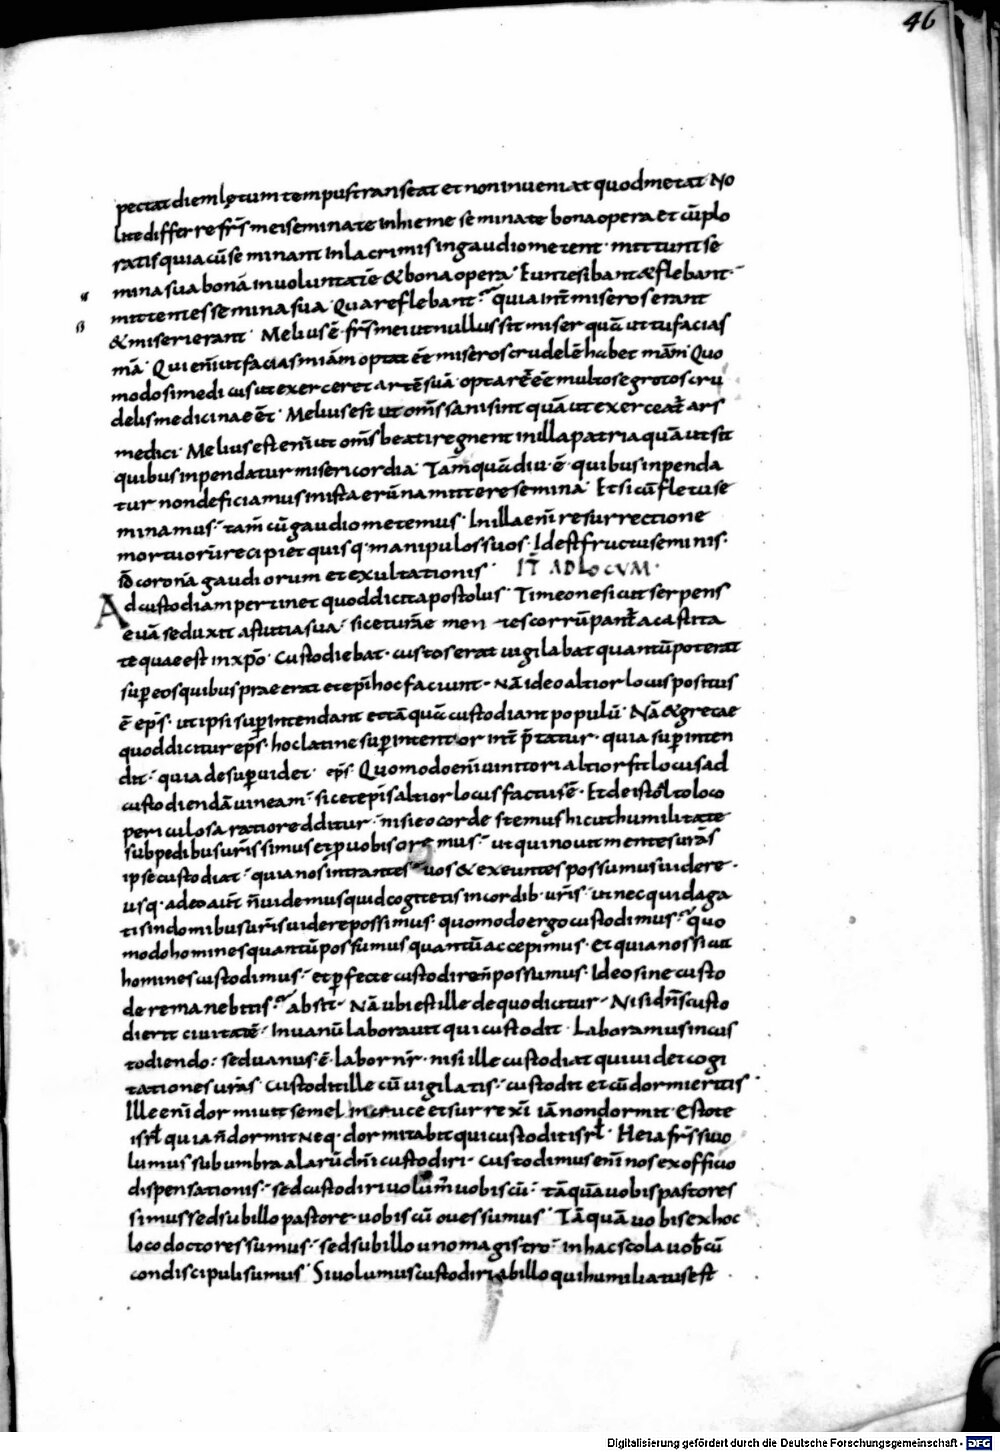 46
pectat diem lętum tempus transeat et non inueniat quod metat No
lite differre fr̄s mei seminate in hieme seminate bona opera et cū plo
ratis quia cū seminant in lacrimis in gaudio metent · mittunt se
mina sua bonā in uoluntatē & bona opera · Euntes ibant & flebant ·
mittentes semina sua · Quare flebant · quia int̄ miseros erant
& miseri erant · Melius ē · fr̄s mei ut nullus sit miser quā ut tu facias
mā · Qui enī ut facias miām optat ēē miseros crudelē habet mām · Quo
modo si medicus ut exerceret artē suā · optaret ēē multos egrotos cru
delis medicina eēt · Melius est ut om̄s sani sint quā ut exerceat̄ ars
medici · Melius est enī ut om̄s beati regnent in illa patria quā ut sit
quibus inpendatur misericordia · Tam̄ quādiu · ē · quibus inpenda
tur non deficiamus in ista erūna mittere semina · Et si cū fletu se
minamus · tam̄ cū gaudio metemus · In illa enī resurrectione
mortuorū recipiet quisq · manipulos suos · Id est fructu seminis ·
id̄ coronā gaudiorum et exultationis · IT̄ AD LOCVM ·
Ad custodiam pertinet quod dicit apostolus · Timeo ne sicut serpens
euā seduxit astutia sua · sic et urāe men tes corrūpant̄ a castita
te quae est in xp̄o · Custodiebat · custos erat uigilabat quantū poterat
super eos quibus praeerat et ep̄i hoc faciunt · Nā ideo altior locus positus
ē ep̄s · ut ipsi superintendant et tāquā custodiant populū · Nā & grecae
quod dicitur ep̄s · hoc latine superintentor int̄p̄tatur · quia superinten
dit · quia desuper uidet · ep̄s · Quomodo enī uinitori altior fit locus ad
custodiendā uineam · sic et ep̄is altior locus factus ē · Et de isto alto loco
periculosa ratio redditur · nisi eo corde stemus hic ut humilitate
sub pedibus ur̄is simus et p uobis oremus · ut qui nouit mentes urās
ipse custodiat · quia nos intrantes uos & exeuntes possumus uidere ·
usq · adeo aut̄ n̄ uidemus quid cogitetis in cordib · ur̄is · ut nec quid aga
tis in domibus ur̄is uidere possimus · quomodo ergo custodimus · quo
modo homines quantū possumus quantū accepimus · Et quia nos sicut
homines custodimus · et pfecte custodire n̄ possumus · Ideo sine custo
de remanebitis · absit · Nā ubi est ille de quo dicitur · Nisi dn̄s custo
dierit ciuitatē · In uanū laborauit qui custodit · Laboramus in cus
todiendo · sed uanus · ē · labor nr̄ · nisi ille custodiat qui uidet cogi
tationes urās · Custodit ille cū uigilatis · custodit et cū dormieritis ·
Ille enī dormiuit semel in cruce et surrexī iā non dormit · Estote
isrl̄ quia n̄ dormit Neq · dormitabit qui custodit isrl̄ · Heia fr̄s si uo
lumus sub umbra alarū dn̄i custodiri · Custodimus enī nos ex officio
dispensationis · sed custodiri uolum̄ uobiscū · tāquā uobis pastores
simus sed sub illo pastore · uobiscū oues sumus · Tāquā uobis ex hoc
loco doctores sumus · sed sub illo uno magistro · in hac scola uob̄cū
condiscipuli sumus · Si uolumus custodiri ab illo qui humiliatus est ·
Digitalisierung gefördert durch die Deutsche Forschungsgemeinschaft - DFG